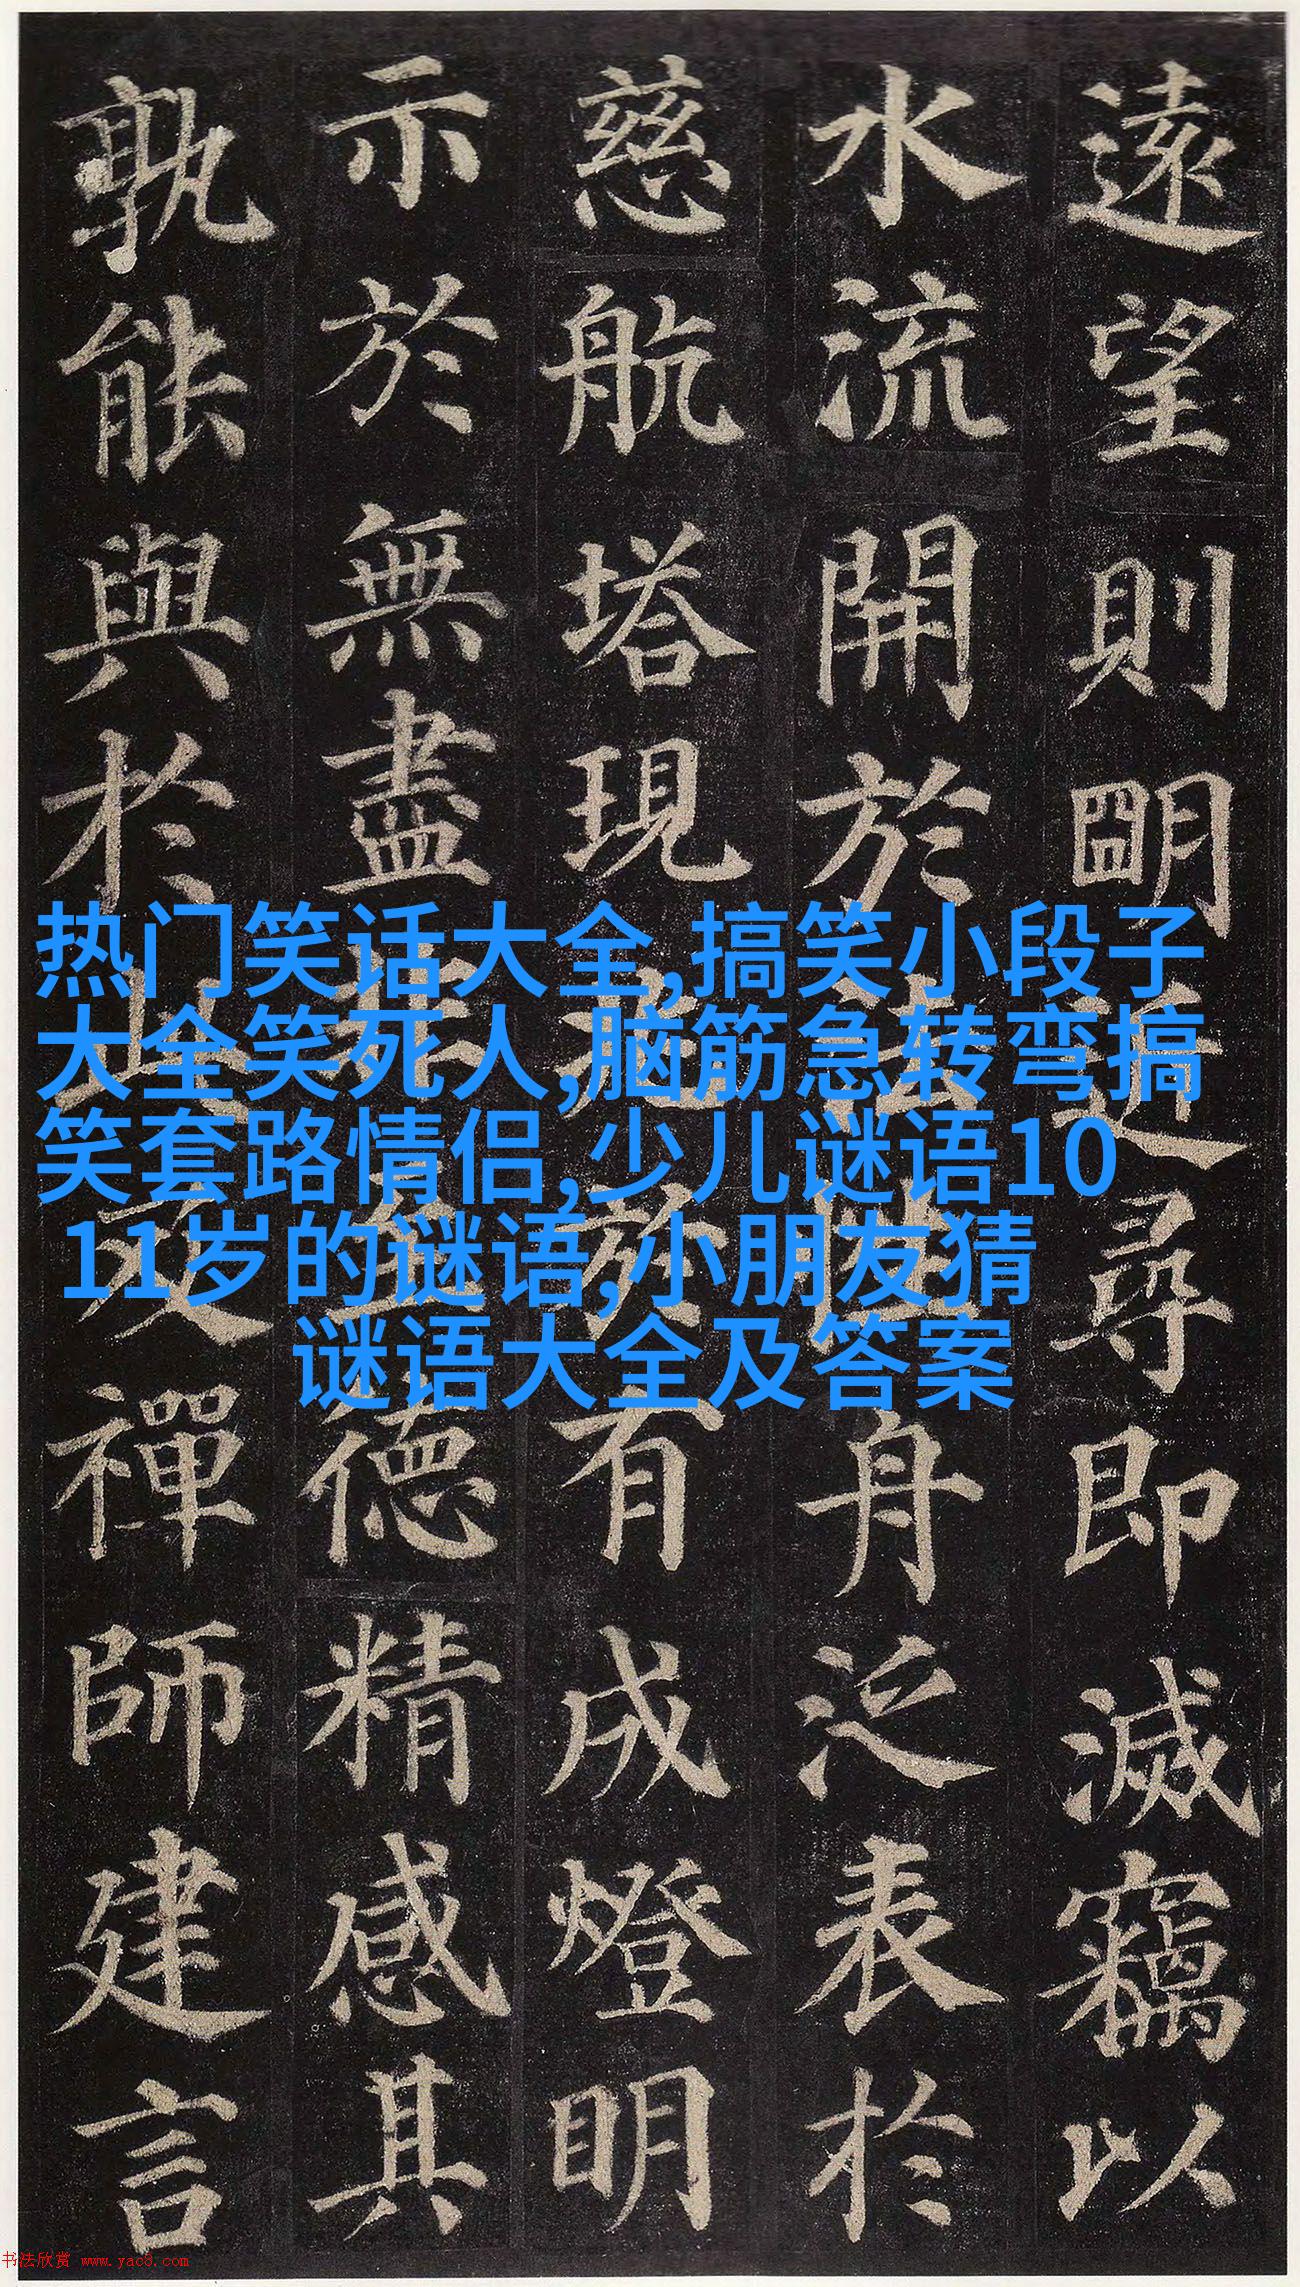 遠望則朙近尋即滅竊以
水流開於法性舟泛表於
慈航塔現兆於有成燈明
示於無盡非至德精感其
孰能與於此及禪師建言
热门笑话大全,搞笑小段子
大全笑死人,脑筋急转弯搞
笑套路情侣,少儿谜语10
11岁的谜语,小朋友猜
谜语大全及答案
书法欣赏 www.yac8.com